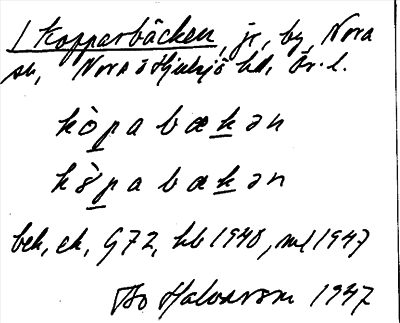 / Kopparbäcken, je, by, Nora
sn, Nora o Hjulsjö hd, Ör. l.
kòpa bækən
kò̈pa bækən
bek, ek, G72, hb 1940, ml 1947
Bo Halvarson 1947